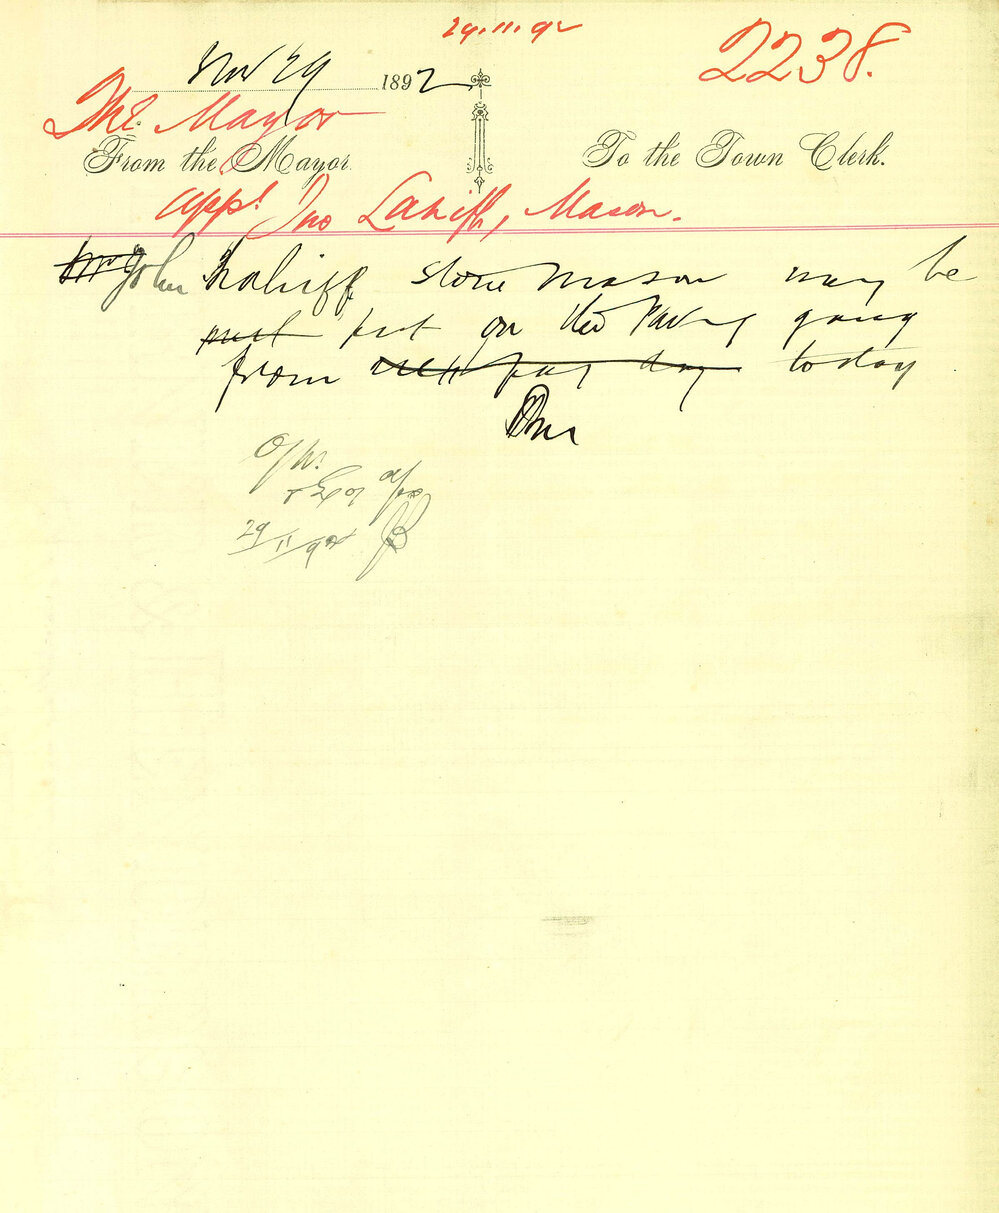 29.11.92
2238.
Nov 29 1892
The Mayor
From the Mayor.
To the Town Clerk.
appt Jno Lahiff, Mason.
Mr John Lahiff stone mason may be
put on the Paving gang
from next pay day today
29/11/92